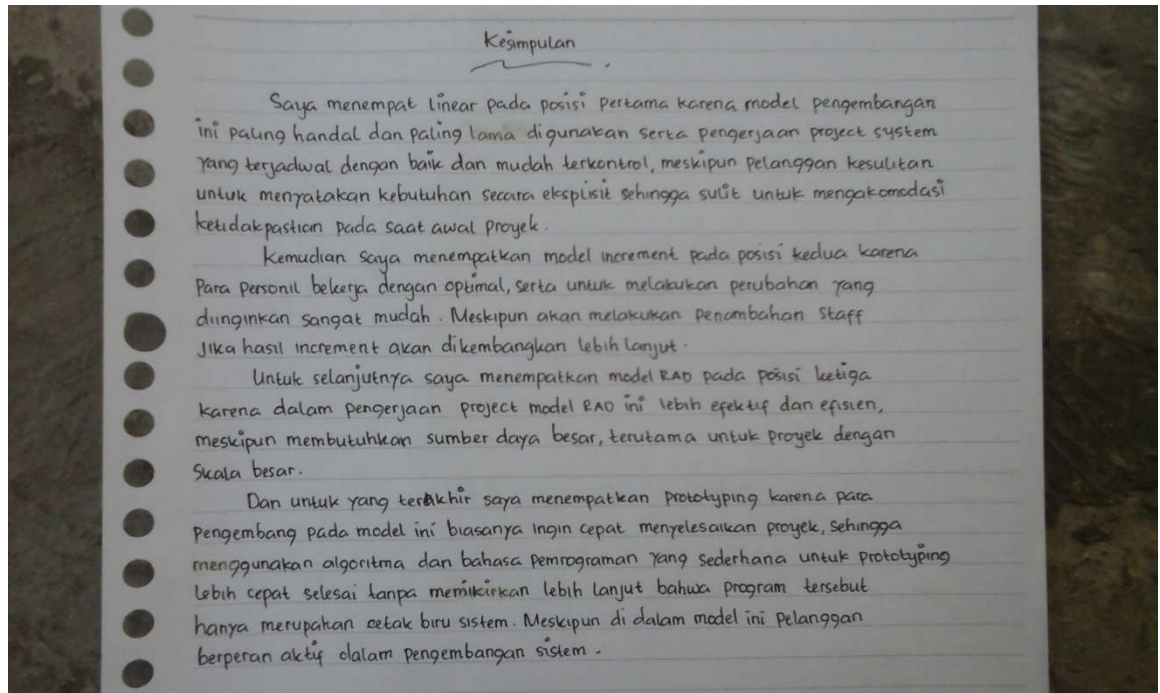 Kesimpulan
Saya menempat linear pada posisi pertama karena model pengembangan
ini paling handal dan paling lama digunakan serta pengerjaan project system
yang terjadwal dengan baik dan mudah terkontrol, meskipun pelanggan kesulitan
untuk menyatakan kebutuhan secara eksplisit sehingga sulit untuk mengakomodasi
ketidakpastian pada saat awal proyek.
Kemudian saya menempatkan model increment pada posisi kedua karena
Para personil bekerja dengan optimal, serta untuk melakukan perubahan yang
diinginkan sangat mudah. Meskipun akan melakukan penambahan staff
Jika hasil increment akan dikembangkan lebih lanjut.
Untuk selanjutnya saya menempatkan model RAD pada posisi ketiga
karena dalam pengerjaan project model RAD ini lebih efektif dan efisien,
meskipun membutuhkan sumber daya besar, terutama untuk proyek dengan
Skala besar.
Dan untuk yang terakhir saya menempatkan prototyping karena para
pengembang pada model ini biasanya ingin cepat menyelesaikan proyek, sehingga
menggunakan algoritma dan bahasa pemrograman yang sederhana untuk prototyping
lebih cepat selesai tanpa memikirkan lebih lanjut bahwa program tersebut
hanya merupakan cetak biru sistem. Meskipun di dalam model ini pelanggan
berperan aktif dalam pengembangan sistem.